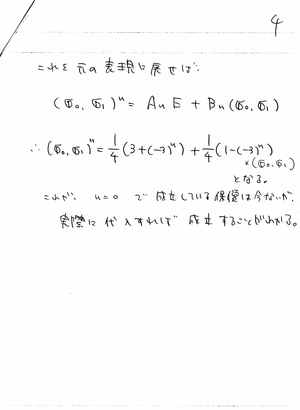 4
これを元の表現に戻せば、
(σ₀,σ₁)ⁿ = AₙE + Bₙ(σ₀,σ₁)
∴ (σ₀,σ₁)ⁿ = 1/4 (3+(-3)ⁿ) + 1/4 (1-(-3)ⁿ)
×(σ₀,σ₁)
となる。
これが、n=0 で成立している保障は今ないが、
実際に代入すれば成立することがわかる。